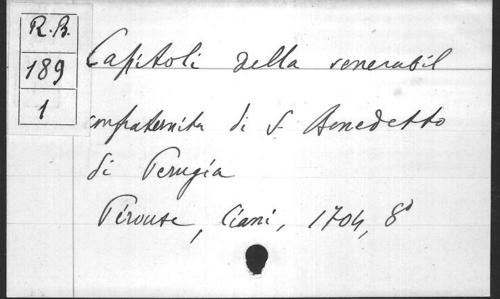 R.B.
189
1
Capitoli della venerabil
confraternita di S. Benedetto
di Perugia
Pérouse, Ciani, 1704, 8°